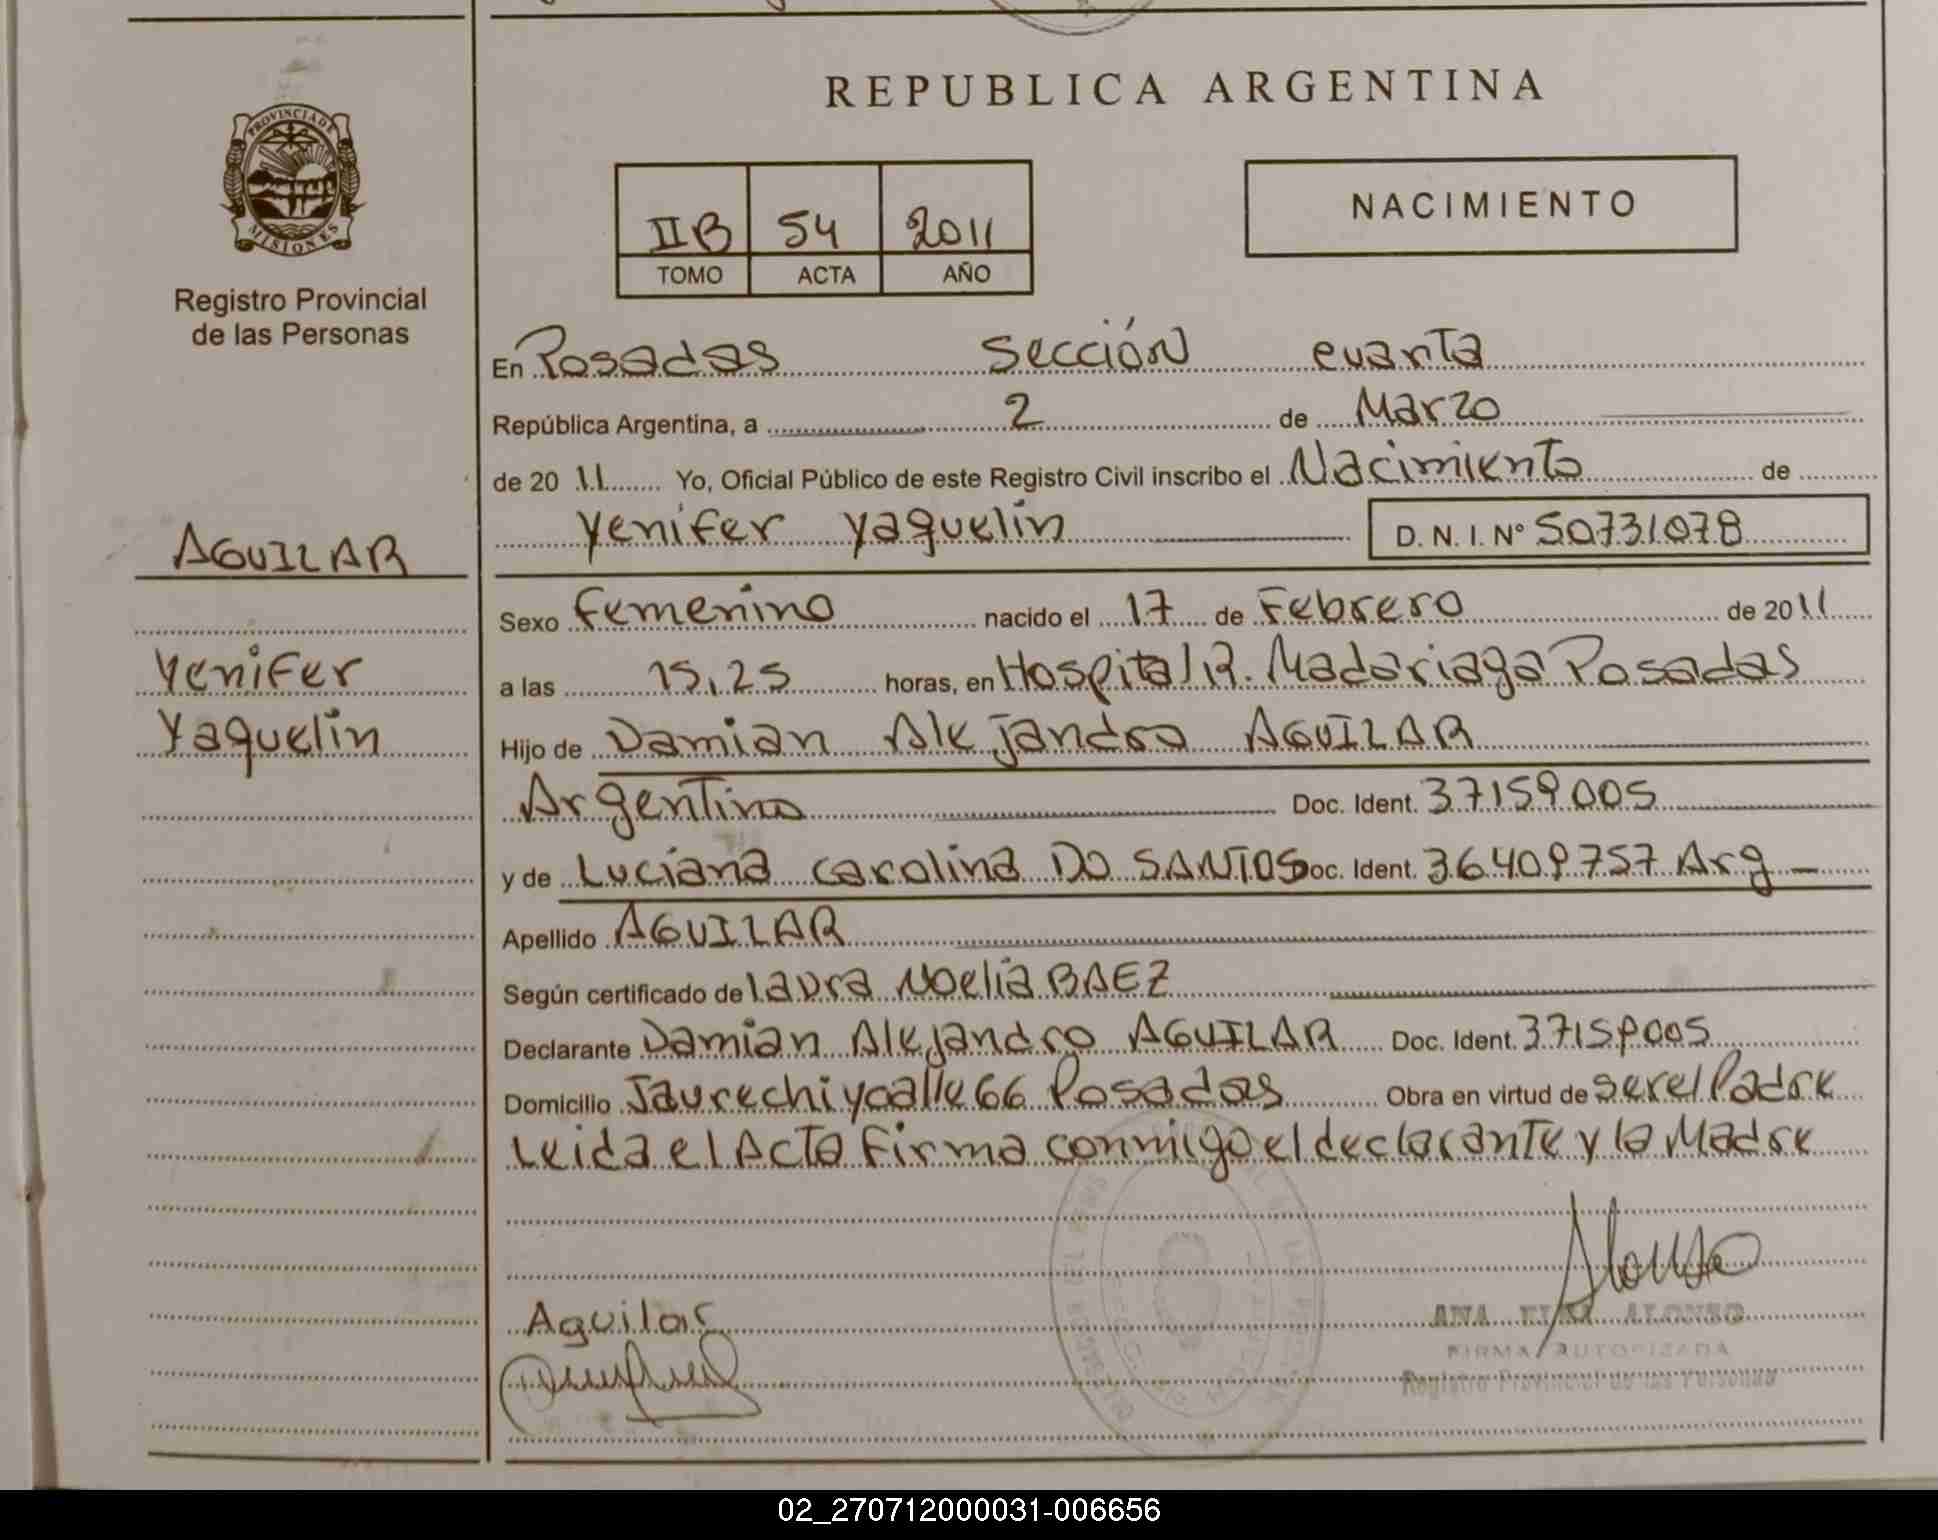 REPUBLICA ARGENTINA
PROVINCIA DE
MISIONES
Registro Provincial
de las Personas
IIB 54 2011
TOMO ACTA AÑO
NACIMIENTO
En Posadas Sección cuarta
República Argentina, a 2 de Marzo
de 20 11 Yo, Oficial Público de este Registro Civil inscribo el Nacimiento de
Yenifer Yaquelin D. N. I. Nº 50731078
AGUILAR
Yenifer
Yaquelin
Sexo Femenino nacido el 17 de Febrero de 2011
a las 15,25 horas, en Hospital R. Madariaga Posadas
Hijo de Damian Alejandro AGUILAR
Argentino Doc. Ident. 37159005
y de Luciana Carolina DO SANTOS Doc. Ident. 36409757 Arg
Apellido AGUILAR
Según certificado de Laura Noelia BAEZ
Declarante Damian Alejandro AGUILAR Doc. Ident. 37159005
Domicilio Jaurechi y calle 66 Posadas Obra en virtud de ser el Padre
Leida el Acta Firma conmigo el declarante y la Madre
Aguilar
Alonso
ANA ALONSO
FIRMA AUTORIZADA
Registro Provincial de las Personas
02_270712000031-006656